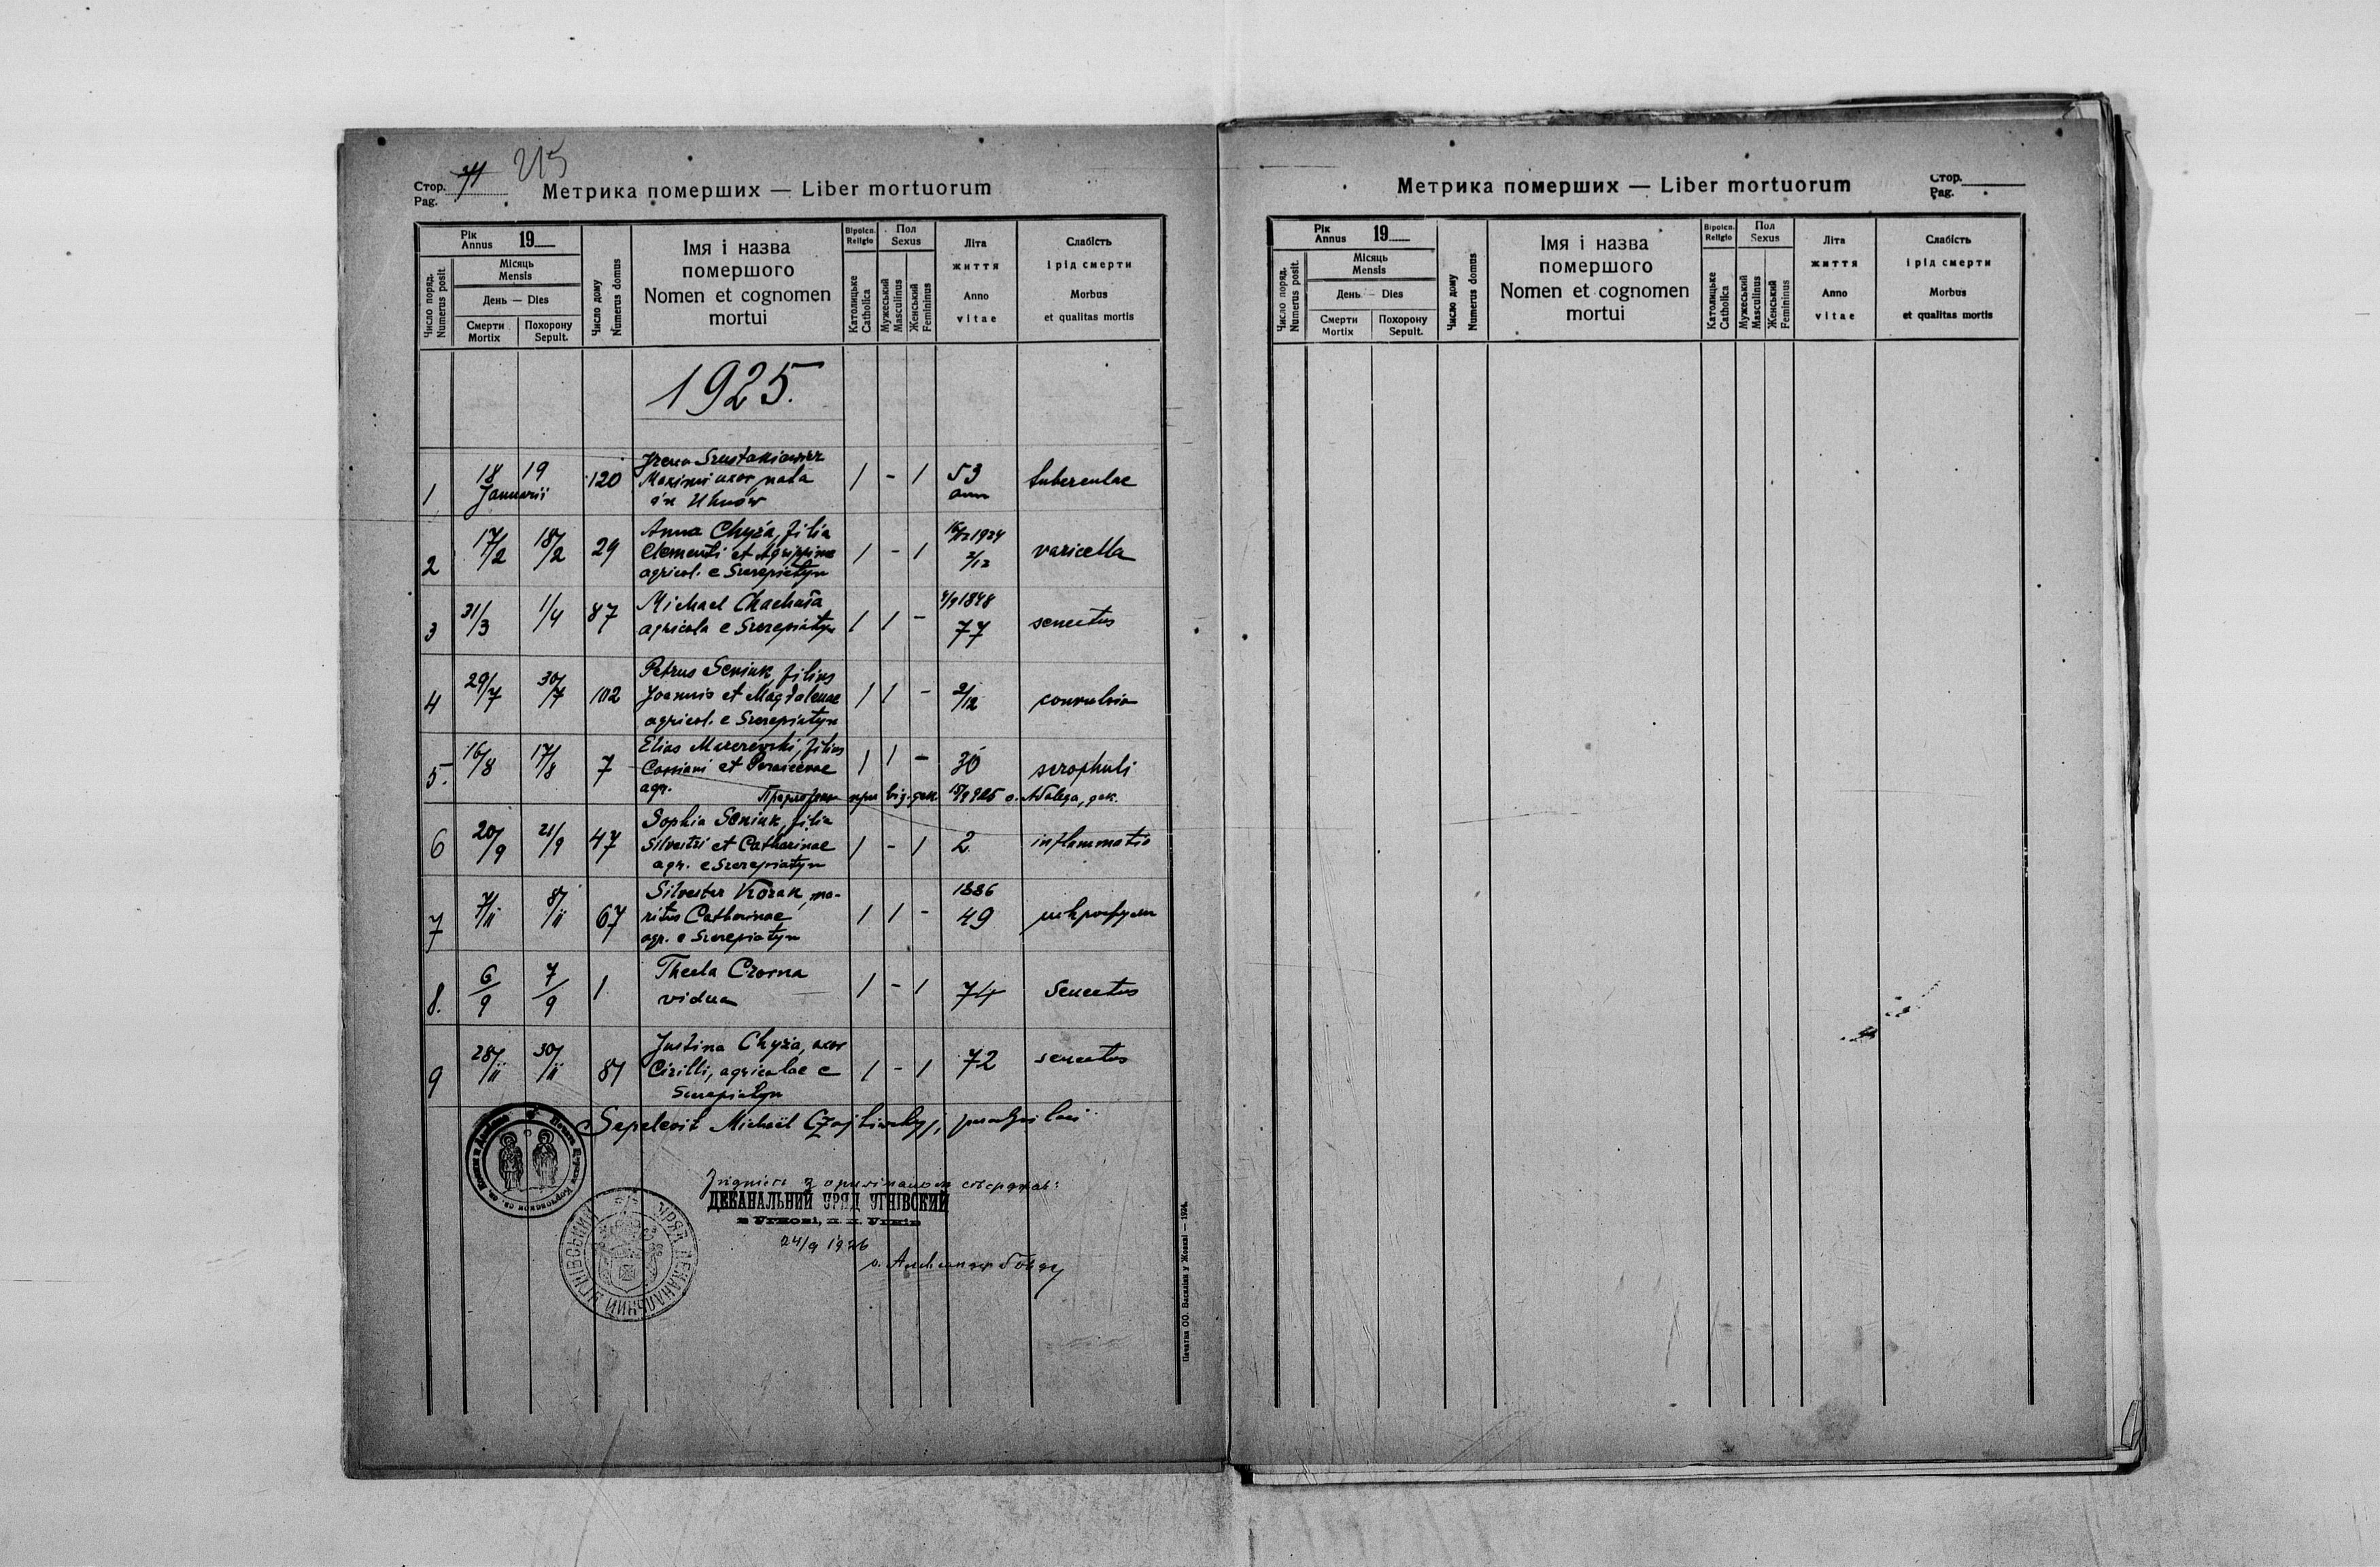 Стор. 71 215
Pag.
Метрика померших — Liber mortuorum
Рік
Annus 19
Число поряд.
Numerus posit.
Місяць
Mensis
День — Dies
Смерти
Mortix
Похорону
Sepult.
Число дому
Numerus domus
Імя і назва
помершого
Nomen et cognomen
mortui
Віроісп.
Religio
Католицьке
Catholica
Пол
Sexus
Мужеський
Masculinus
Женський
Femininus
Літа
життя
Anno
vitae
Слабість
і рід смерти
Morbus
et qualitas mortis
1925.
1 18 19 Januarii 120 Irena Szustakiewicz 1 - 1 53 tuberculae
Maximi uxor nata
Uhnów
2 17/2 18/2 29 Anna Chyża, filia 1 - 1 1924 2/12 varicella
Clementi et Agrippinae
agricol. e Szczepiatyn
3 31/3 1/4 87 Michael 1 1 - 1848 77 senectus
agricola e Szczepiatyn
4 29/7 30/7 102 Petrus Seniuk, filius 1 1 - 2/12 convulsio
Joannis et Magdalenae
agricol. e Szczepiatyn
5. 16/8 17/8 7 Elias filius 1 1 - 30 scrophuli
et
agr.
при від. дек. 925 о. дек.
6 20/9 21/9 47 Sophia Seniuk, filia 1 - 1 2 inflammatio
Silvestri et Catharinae
agr. e Szczepiatyn
7 7/11 8/11 67 Silvester Kozak, ma- 1 1 - 1886 49
ritus Catharinae
agr. e Szczepiatyn
8. 6/9 7/9 1 Thecla Czorna 1 - 1 74 Senectus
vidua
9 28/11 30/11 81 Justina Chyża, uxor 1 - 1 72 senectus
Cirilli, agricolae e
Szczepiatyn
Sepelevit Michaël
з оригіналом
ДЕКАНАЛЬНИЙ УРЯД УГНІВСКИЙ
в Угнові, п. л. Угнів
24/9 1926
о.
УРЯД ДЕКАНАЛЬНИЙ УГНІВСЬКИЙ
Печатня ОО. Василіян у Жовкві — 1924.
Метрика померших — Liber mortuorum
Стор.
Pag.
Рік
Annus 19
Число поряд.
Numerus posit.
Місяць
Mensis
День — Dies
Смерти
Mortix
Похорону
Sepult.
Число дому
Numerus domus
Імя і назва
помершого
Nomen et cognomen
mortui
Віроісп.
Religio
Католицьке
Catholica
Пол
Sexus
Мужеський
Masculinus
Женський
Femininus
Літа
життя
Anno
vitae
Слабість
і рід смерти
Morbus
et qualitas mortis